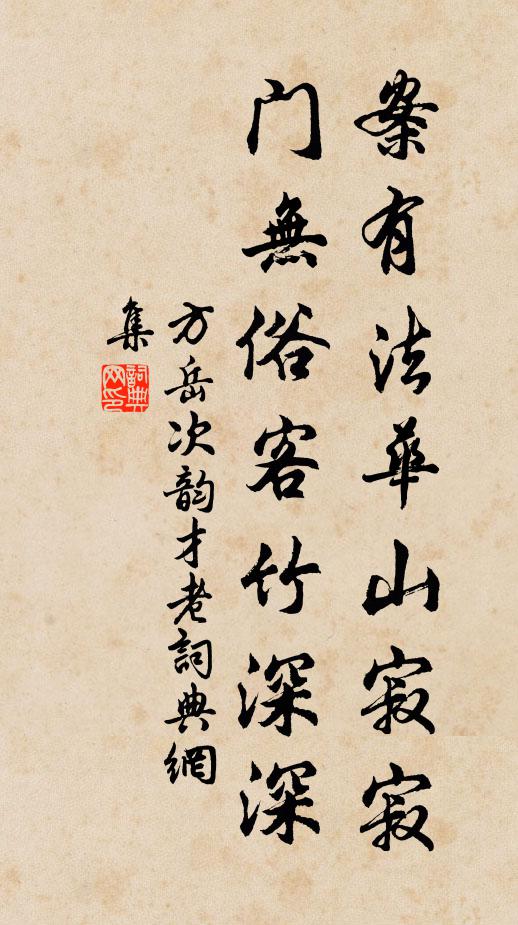 案有法華山寂寂
門無俗客竹深深
方岳次韵才老詞典網
集
詞典网印